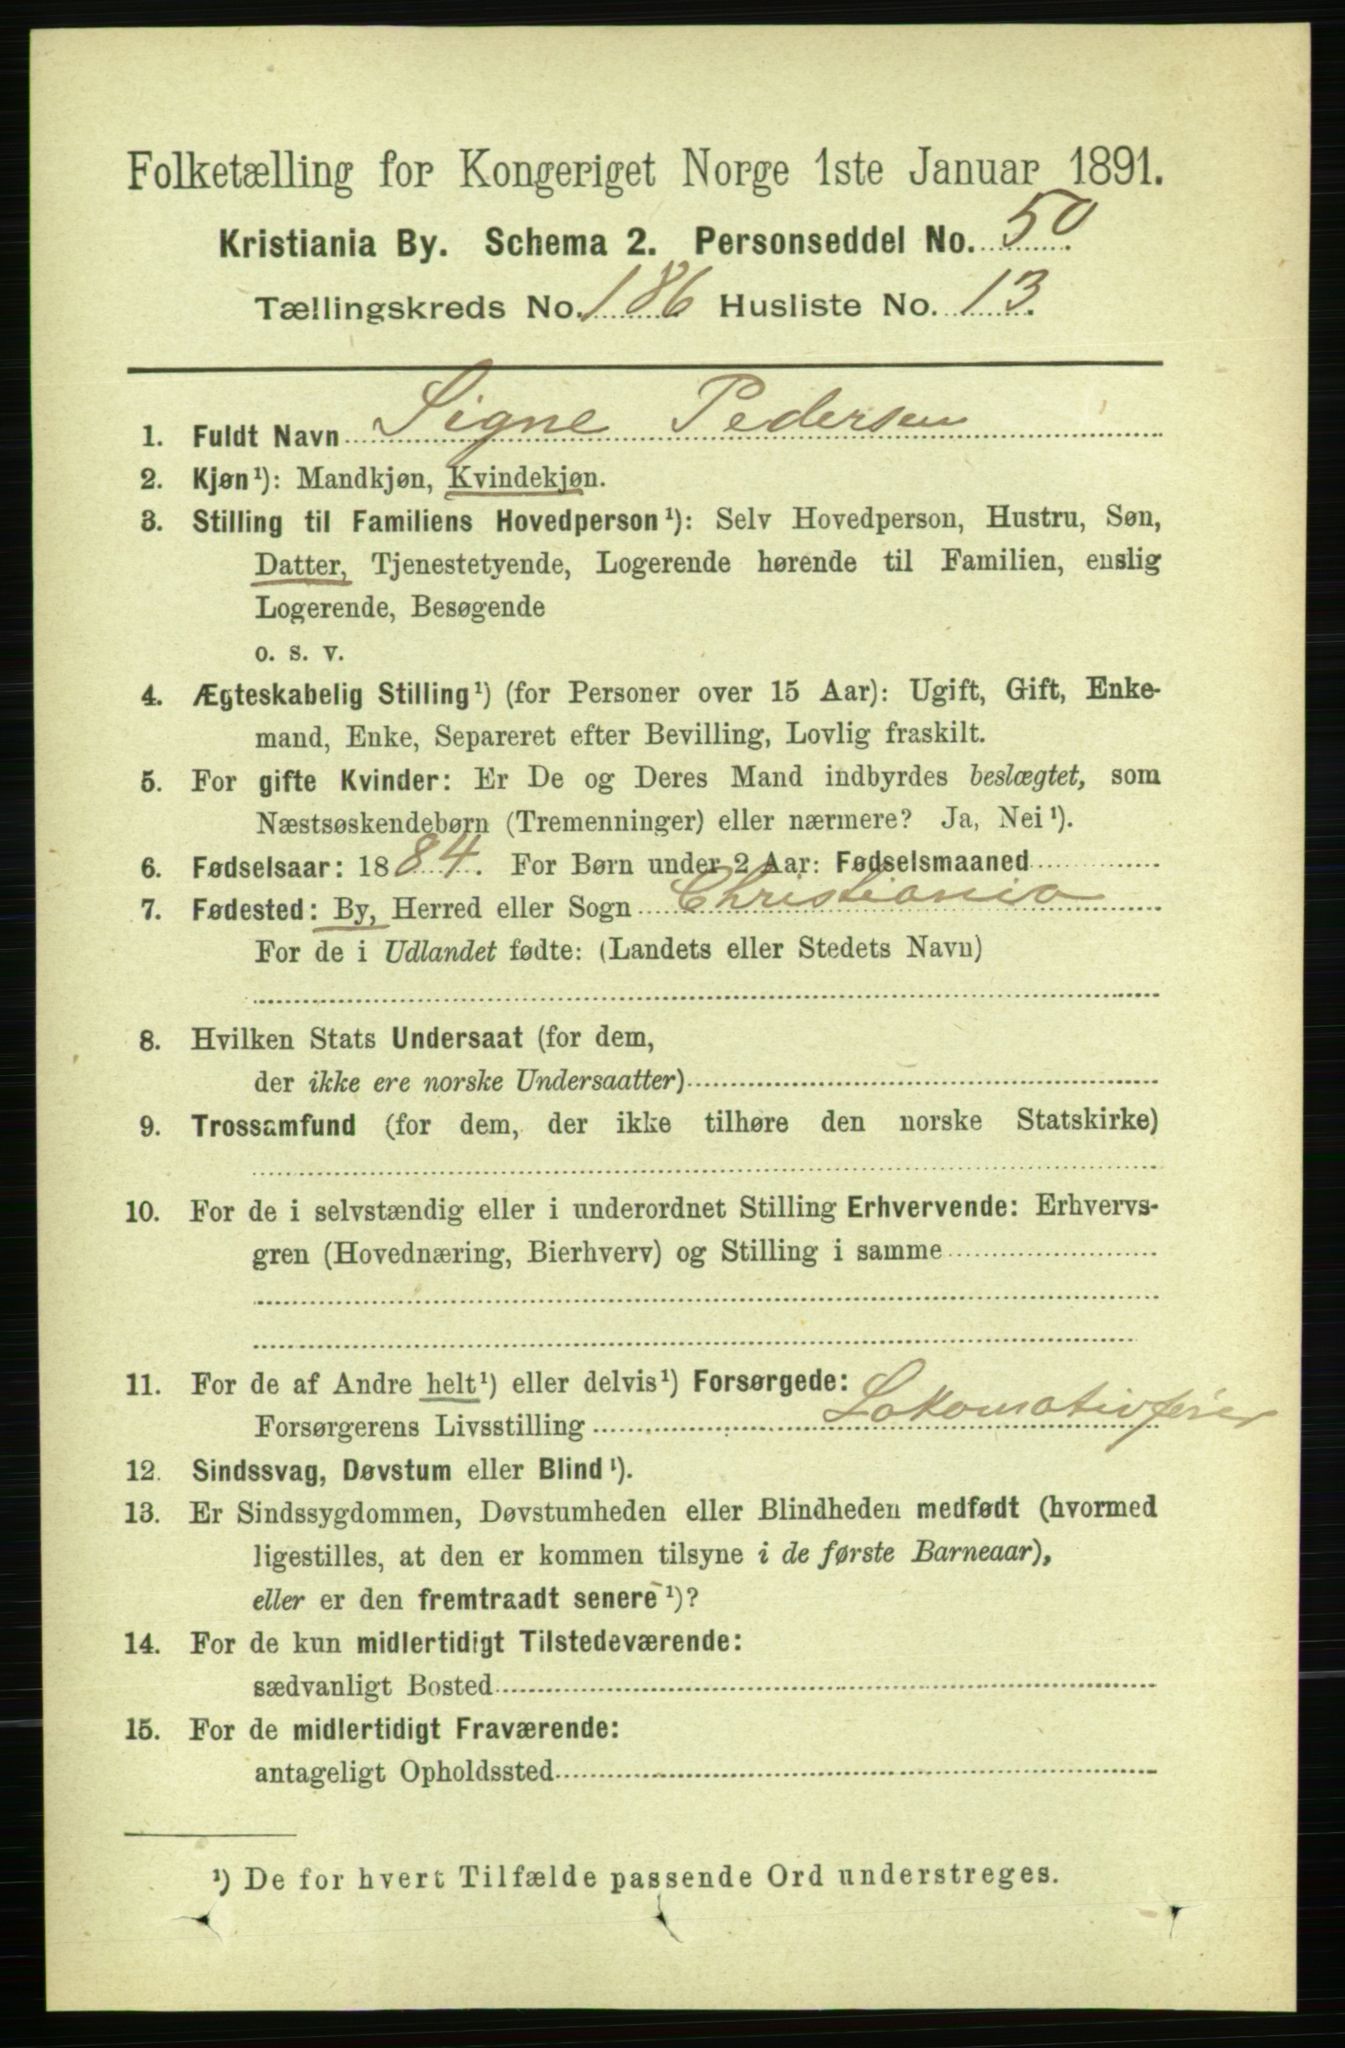 Folketælling for Kongeriget Norge 1ste Januar 1891.
Kristiania By. Schema 2. Personseddel No. 50
Tællingskreds No. 186 Husliste No. 13.
1. Fuldt Navn Signe Pedersen
2. Kjøn¹): Mandkjøn, Kvindekjøn.
3. Stilling til Familiens Hovedperson¹): Selv Hovedperson, Hustru, Søn,
Datter, Tjenestetyende, Logerende hørende til Familien, enslig
Logerende, Besøgende
o. s. v.
4. Ægteskabelig Stilling¹) (for Personer over 15 Aar): Ugift, Gift, Enke-
mand, Enke, Separeret efter Bevilling, Lovlig fraskilt.
5. For gifte Kvinder: Er De og Deres Mand indbyrdes beslægtet, som
Næstsøskendebørn (Tremenninger) eller nærmere? Ja, Nei¹).
6. Fødselsaar: 1884. For Børn under 2 Aar: Fødselsmaaned
7. Fødested: By, Herred eller Sogn Christiania
For de i Udlandet fødte: (Landets eller Stedets Navn)
8. Hvilken Stats Undersaat (for dem,
der ikke ere norske Undersaatter)
9. Trossamfund (for dem, der ikke tilhøre den norske Statskirke)
10. For de i selvstændig eller i underordnet Stilling Erhvervende: Erhvervs-
gren (Hovednæring, Bierhverv) og Stilling i samme
11. For de af Andre helt¹) eller delvis¹) Forsørgede:
Forsørgerens Livsstilling Lokomotivfører
12. Sindssvag, Døvstum eller Blind¹).
13. Er Sindssygdommen, Døvstumheden eller Blindheden medfødt (hvormed
ligestilles, at den er kommen tilsyne i de første Barneaar),
eller er den fremtraadt senere¹)?
14. For de kun midlertidigt Tilstedeværende:
sædvanligt Bosted
15. For de midlertidigt Fraværende:
antageligt Opholdssted
¹) De for hvert Tilfælde passende Ord understreges.